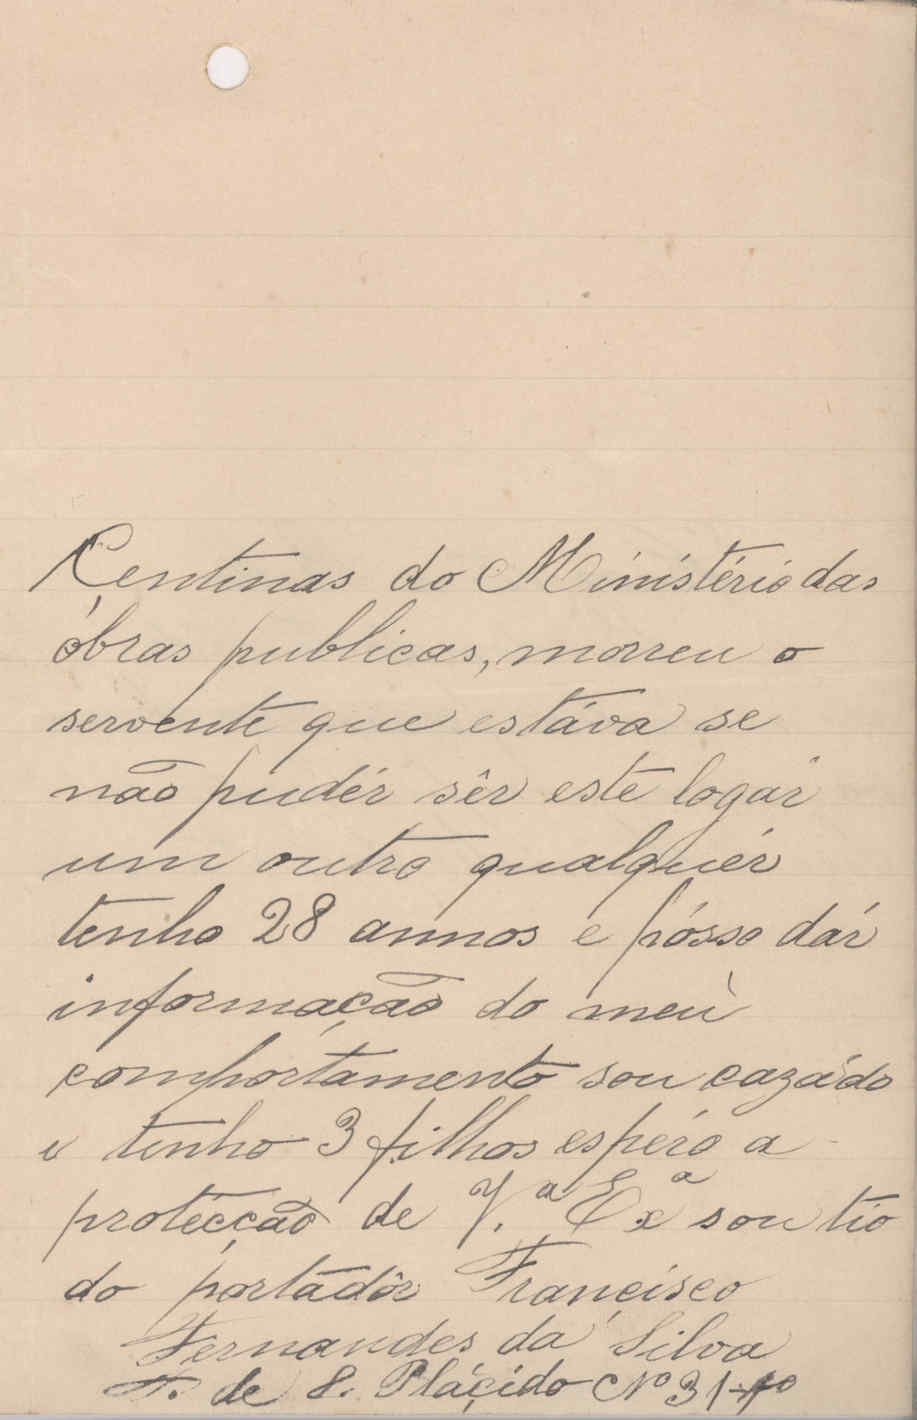 Rentinas do Ministério das
óbras publicas, morreu o
servente que estáva se
não pudér sêr este logár
um outro qualquér
tenho 28 annos e pósso dár
informação do meù
compórtamento sou cazádo
e tenho 3 filhos espéro a
protecção de V.ª Exª sou tio
do pórtadôr Francisco
Fernandes da Silva
T. de S. Plácido Nº 31-1º